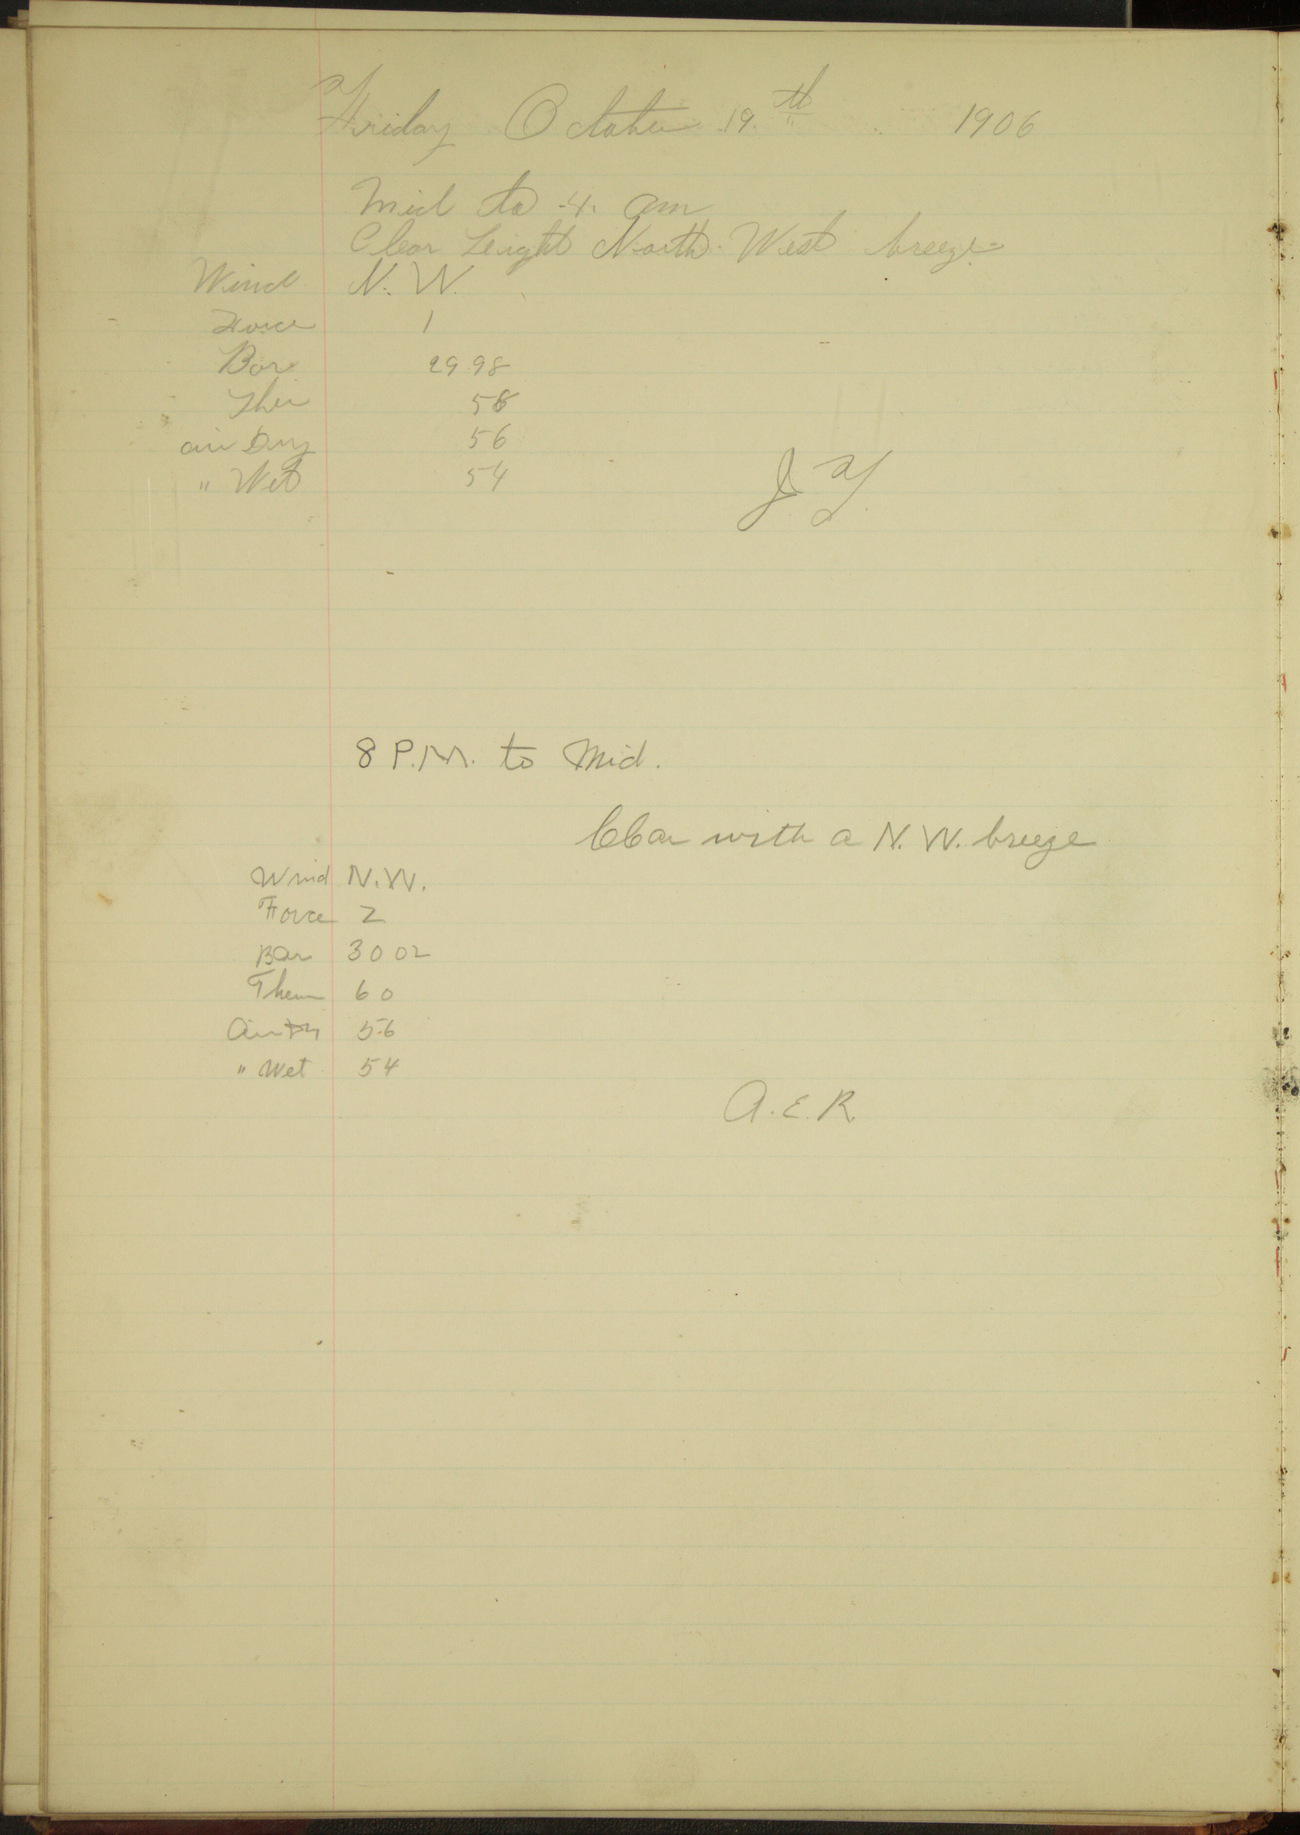 Friday October 19th 1906
Mid to 4. am
Clear Leight North West breeze
Wind N. W.
Force 1
Bar 29 98
Ther 58
air Dry 56
" Wet 54
J. Y.
8 P.M. to Mid.
Clear with a N. W. breeze
Wind N. W.
Force 2
Bar 30 02
Them 60
Air Dry 56
" Wet 54
A. E. R.